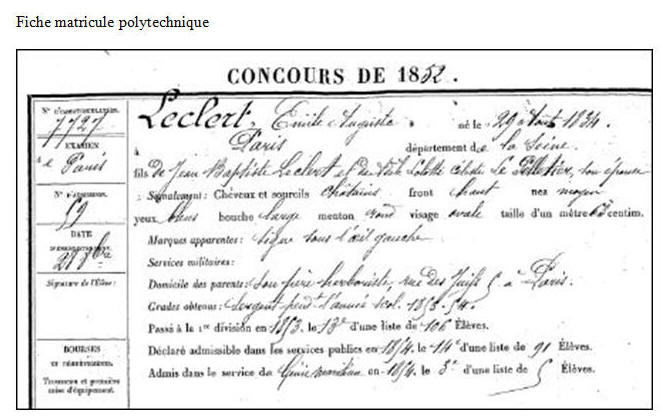 Fiche matricule polytechnique
CONCOURS DE 1852.
N° D'IMMATRICULATION.
7727
EXAMEN
de Paris
N° D'ADMISSION.
59
DATE
Signature de l'Élève :
BOURSES
Trousseau et première
mise d'équipement.
Leclert, Emile Auguste né le 29 Août 1834.
à Paris département de la Seine.
fils de Jean Baptiste Leclert et de Le Pelletier, son épouse
Signalement : Cheveux et sourcils châtains front haut nez moyen
yeux bleus bouche large menton rond visage ovale taille d'un mètre 63 centim.
Marques apparentes : signe sous l'œil gauche
Services militaires :
Domicile des parents : son père herboriste, rue des Juifs 5 à Paris.
Grades obtenus : Sergent pend.t l'année scol. 1853.54.
Passé à la 1re division en 1853. le 13e d'une liste de 106 Élèves.
Déclaré admissible dans les services publics en 1854. le 14e d'une liste de 91 Élèves.
Admis dans le service du Génie maritime en 1854. le 3e d'une liste de 5 Élèves.